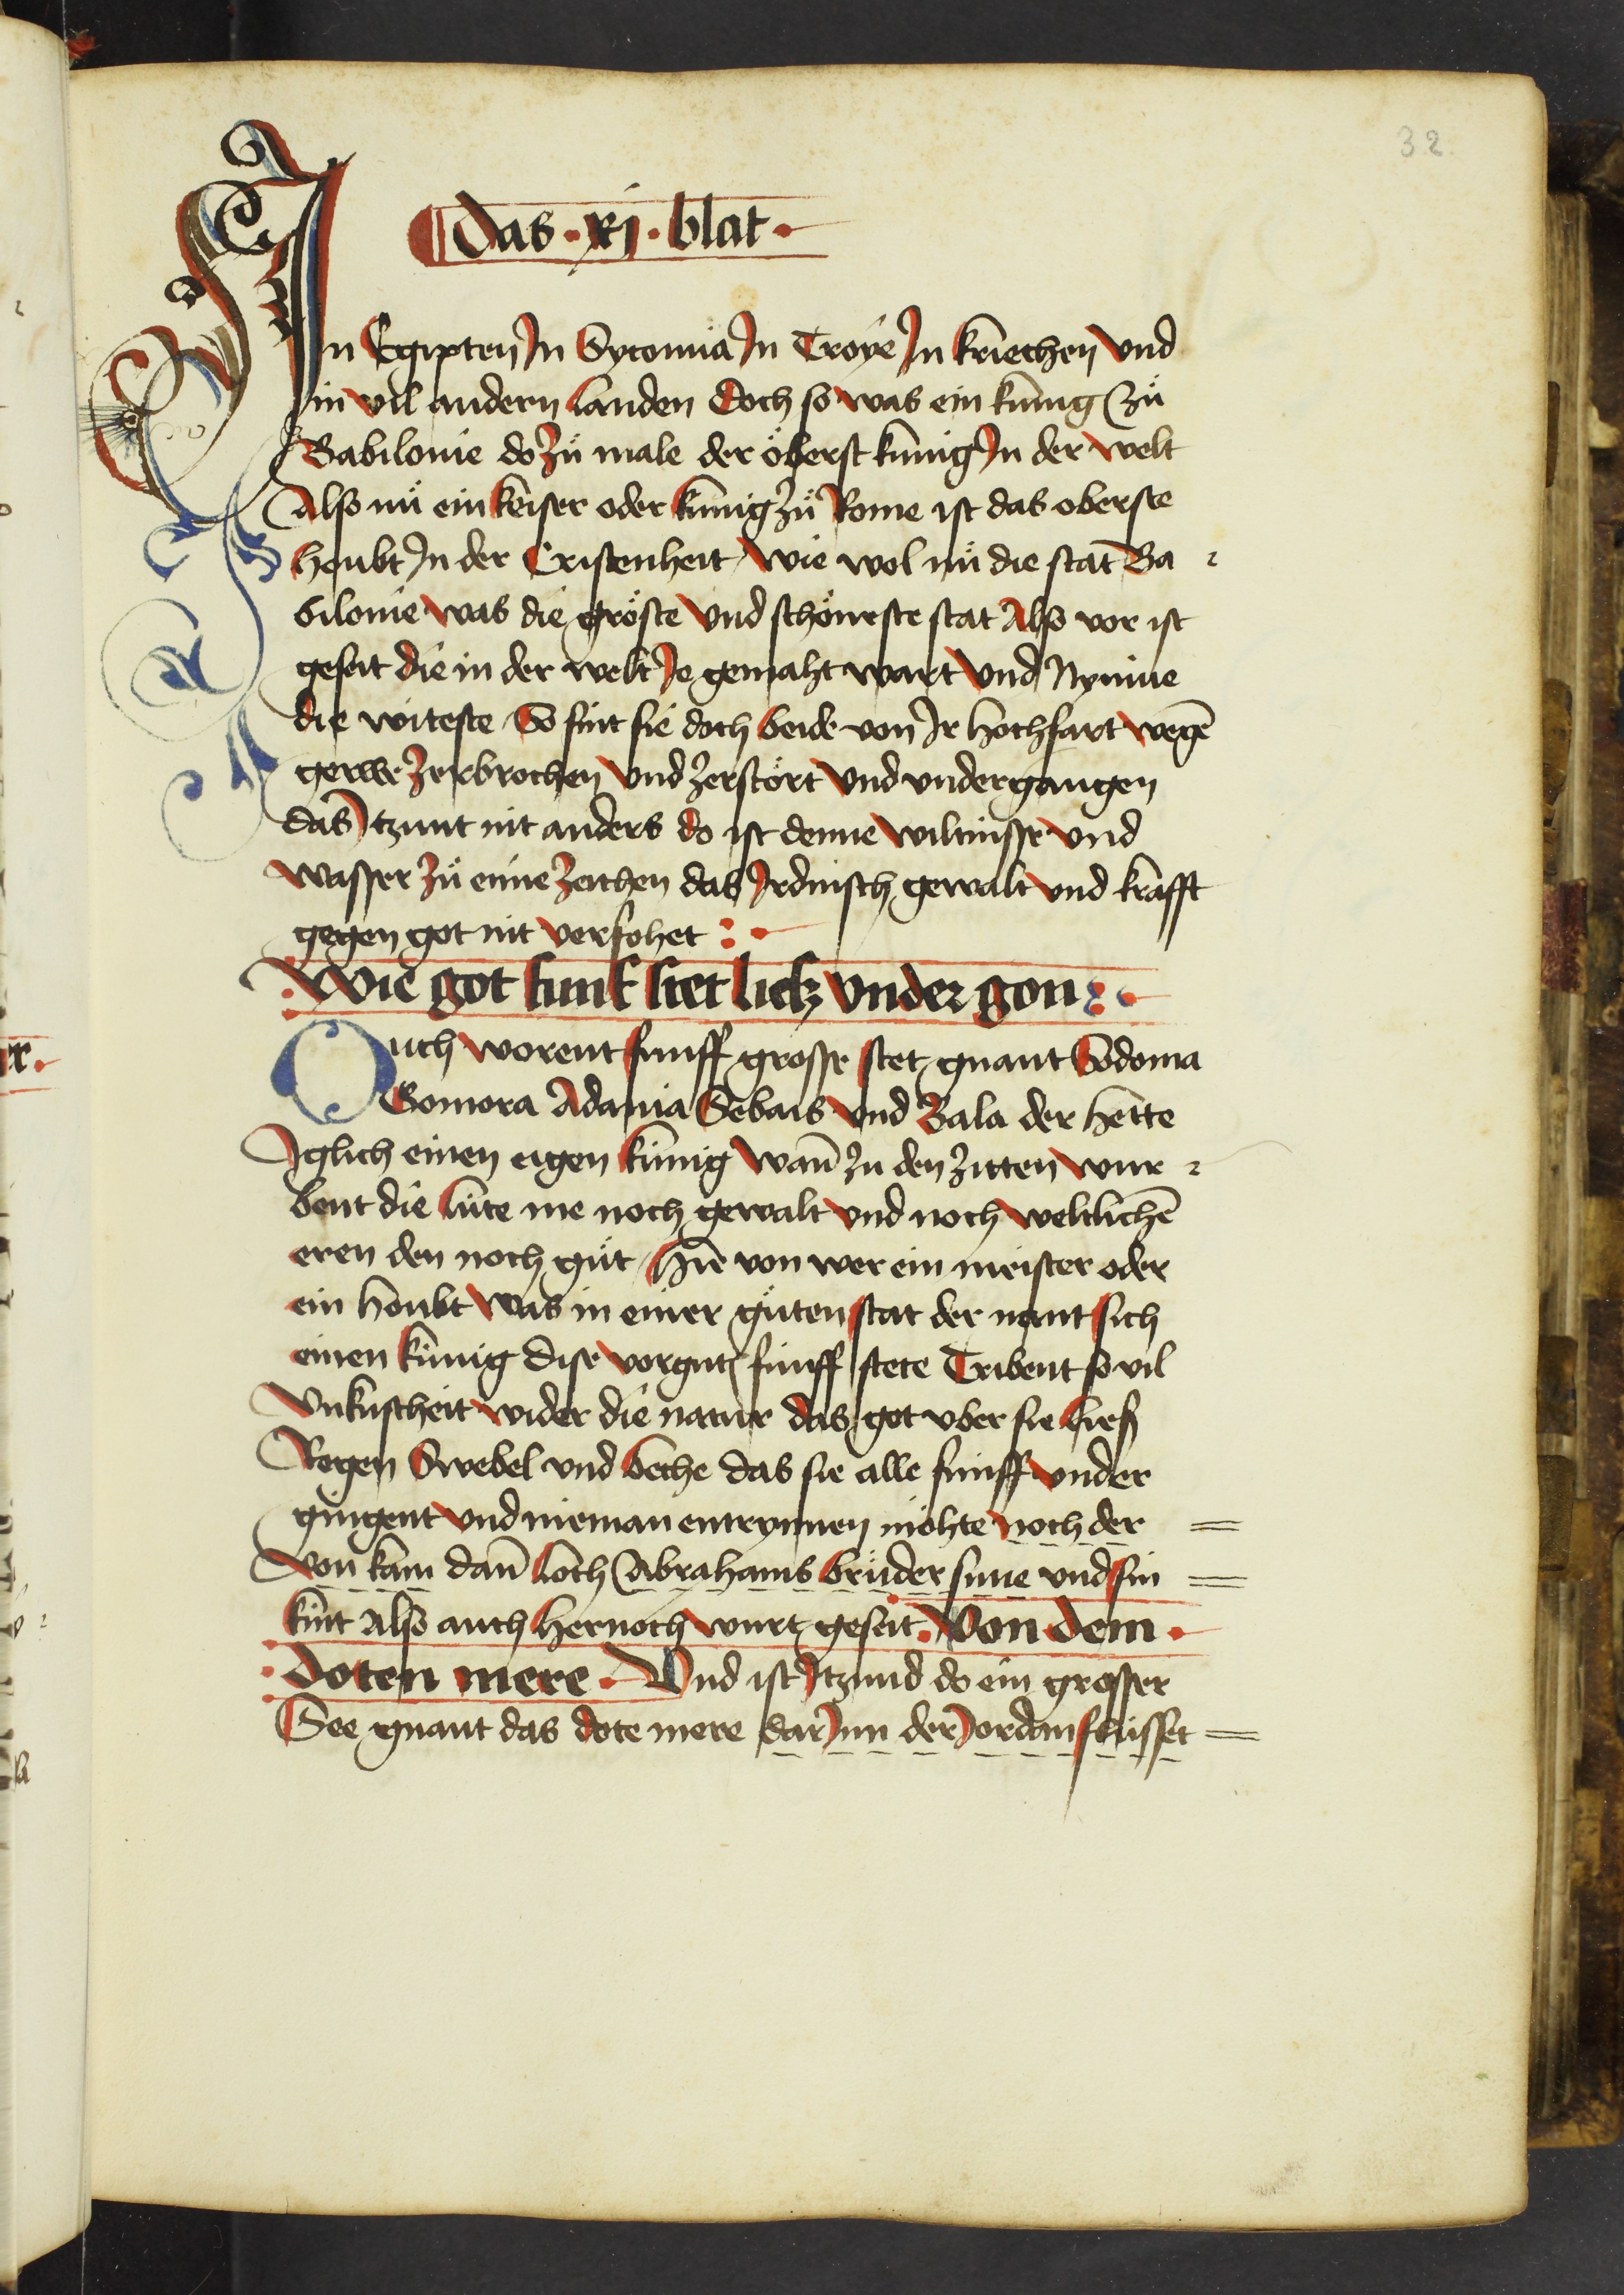 32.
Das · xj · blat ·
In Egipten In Syconia In Troye In kriechen Vnd
in vil andern landen Doch so was ein kunig Zů
Babilonie do Zů male der ŏberst kunig In der welt
Also nů ein keiser oder kunig Zů Rome ist das oberste
houbt In der Cristenheit wie wol nů die stat Ba-
bilonie was die grŏste Vnd schŏneste stat Also vor ist
geseit die in der welt Je gemaht wart Vnd Nyniue
die witeste So sint sie doch beide von Ir hochfart wegē
gerwe Zerbrochen Vnd Zerstŏrt Vnd vndergangen
das Itzunt nit anders do ist denne wiltnisse vnd
wasser Zů eine Zeichen das Irdinisch gewalt vnd krafft
gegen got nit verfohet :·
Wie got funf stet liesz Vnder gon :·
Ouch worent funff grosse stet gnant Sodoma
Gomora Adama Sebais vnd Bala der hette
Iglich einen eigen kunig wañ zu den Zitten wur-
bent die lute me noch gewalt vnd noch weltlichē
eren den noch gůt hie von wer ein meister oder
ein houbt was in einer gůten stat der nant sich
einen kunig dise vorgnt funff stete Tribent so vil
Vnkuscheit wider die natur das got vber sie liesz
Regen Swebel vnd beche das sie alle funff vnder
gingent Vnd nieman entrynnen mŏhte noch der
von kam dañ loth Abrahams brůder sune vnd sin
kint Also auch hernoch wurt geseit · Von dem ·
· doten mere · Vnd ist Itzund do ein grosser
See gnant das dote mere dar Inn der Jordan flusset